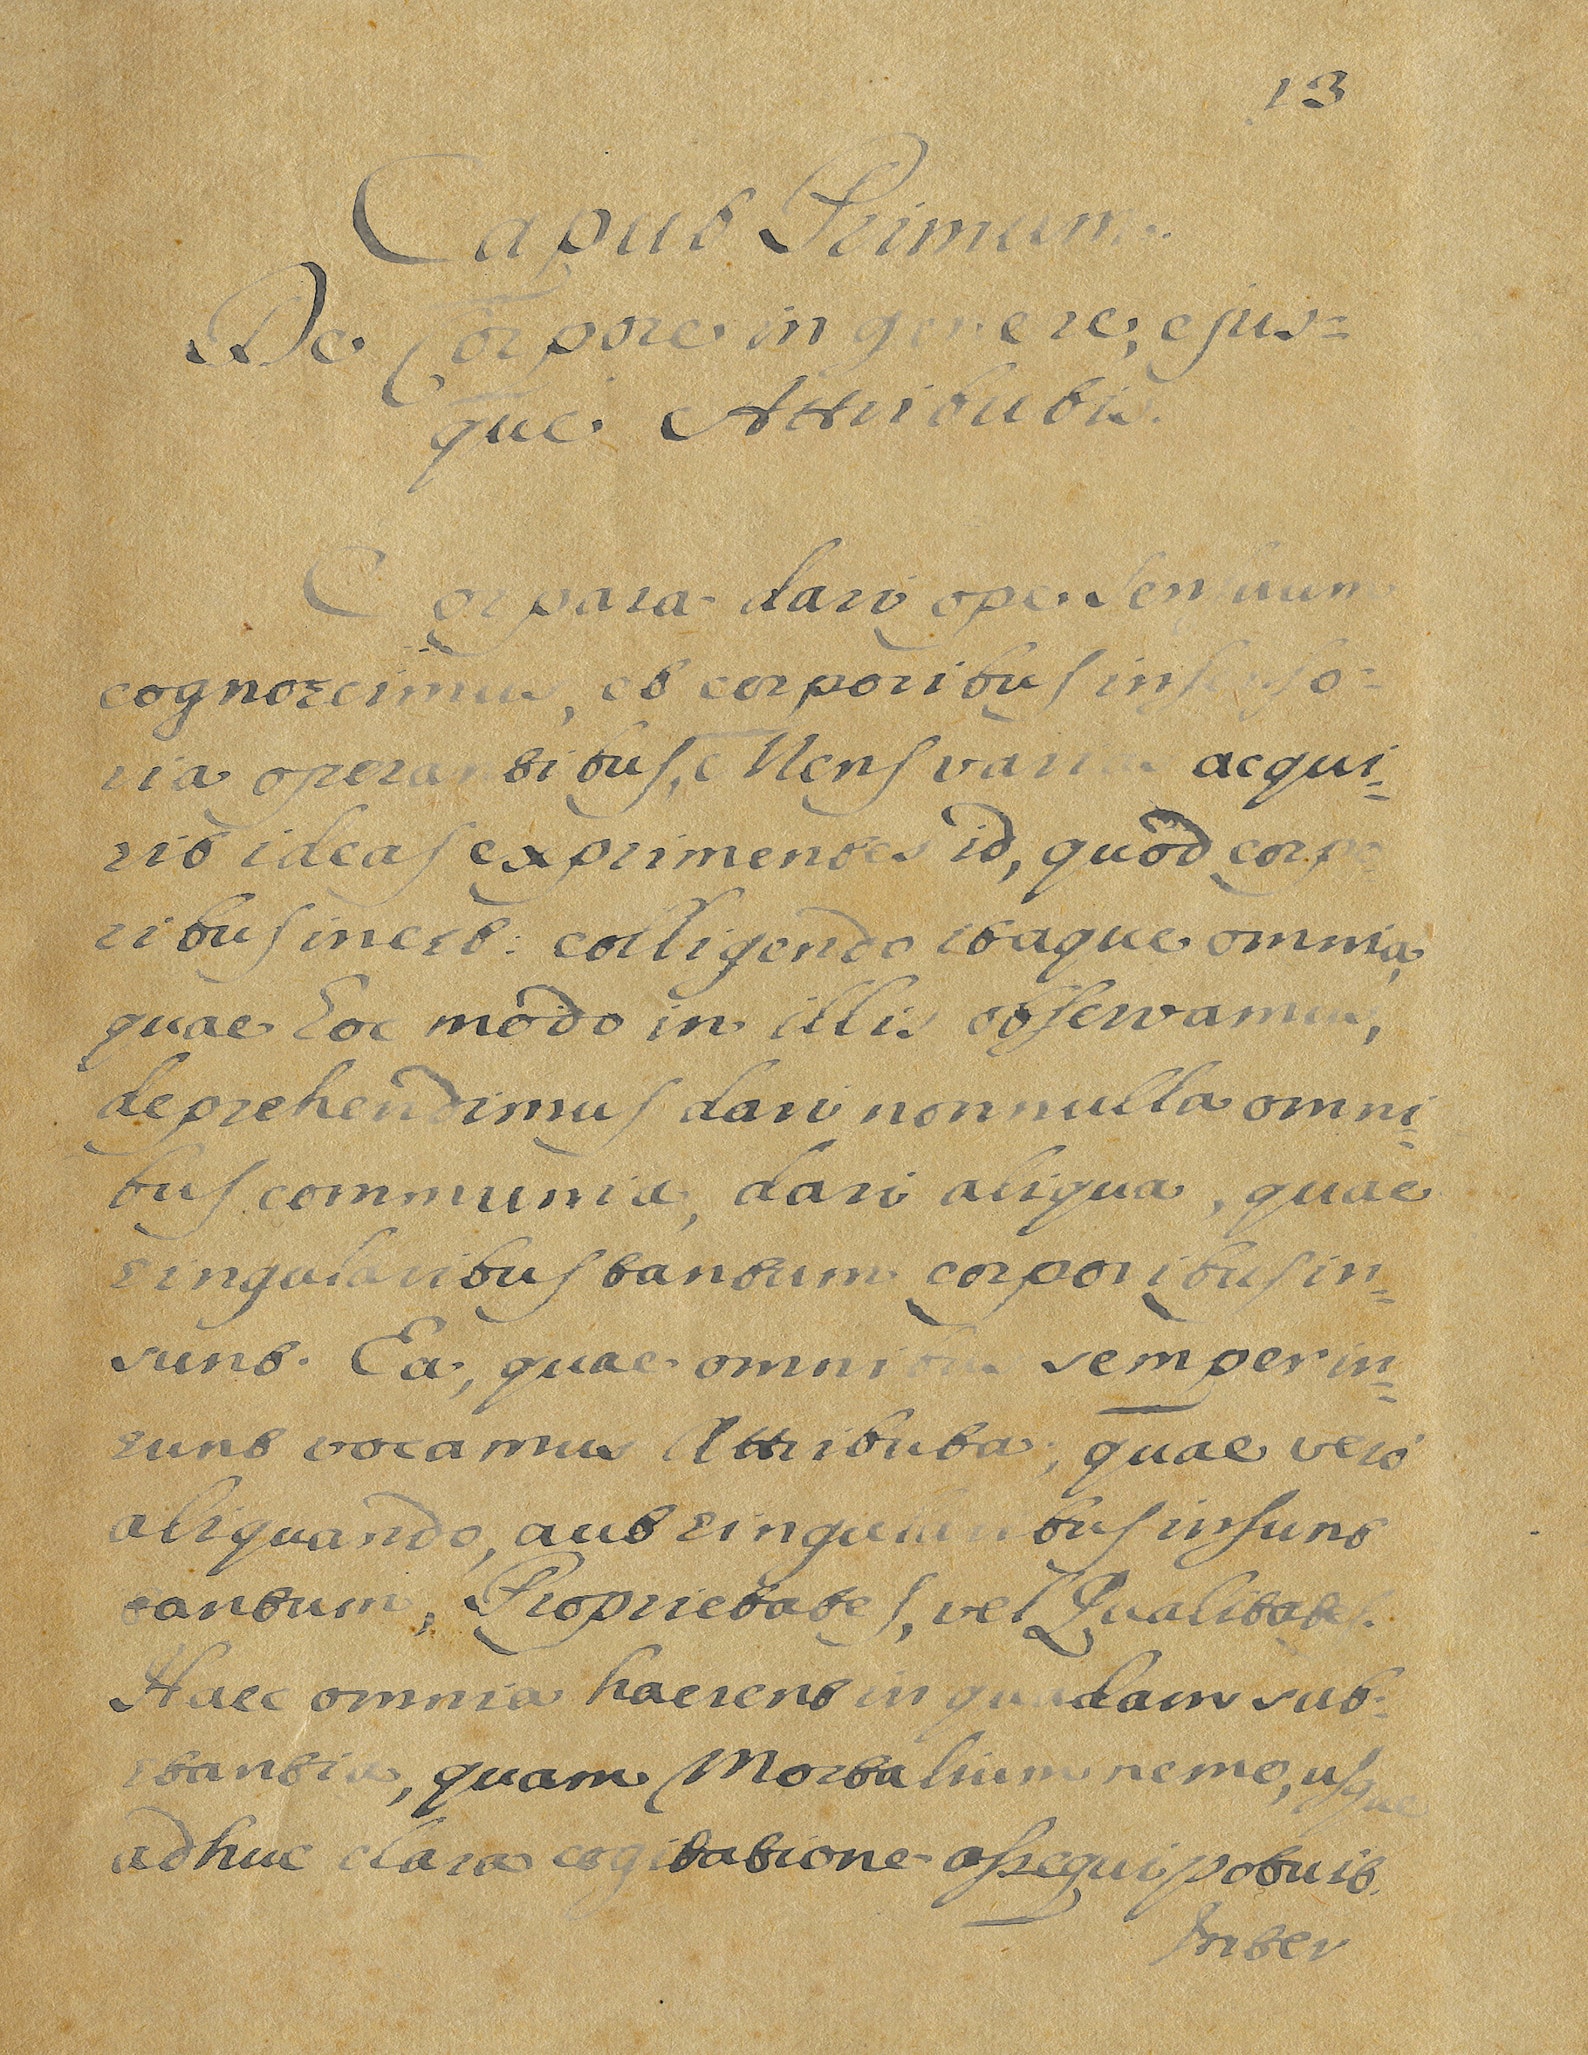 13
Caput Primum.
De Corpore in genere, ejus=
que Attributis.
Corpora dari ope sensuum
cognoscimus, et corporibus in senso=
ria operantibus, Mens varias acqui=
rit ideas exprimentes id, quod corpo
ribus inest: colligendo itaque omnia,
quae hoc modo in illis observamus,
deprehendimus dari nonnulla omni=
bus communia, dari aliqua, quae
singularibus tantum corporibus in=
sunt. Ea, quae omnibus semper in=
sunt vocamus Attributa; quae vero
aliquando, aut singularibus insunt
tantum, Proprietates, vel Qualitates.
Haec omnia haerent in quadam sub=
stantia, quam Mortalium nemo, usque
adhuc clara cogitatione assequi potuit.
Inter